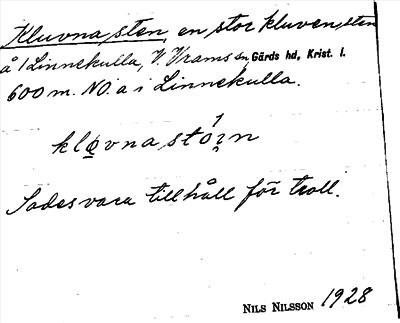 Kluvna sten, en stor kluven sten
å 1 Linnekulla, V. Vrams sn, Gärds hd, Krist. l.
600 m. NO. a i Linnekulla.
Sades vara tillhåll för troll.
NILS NILSSON 1928